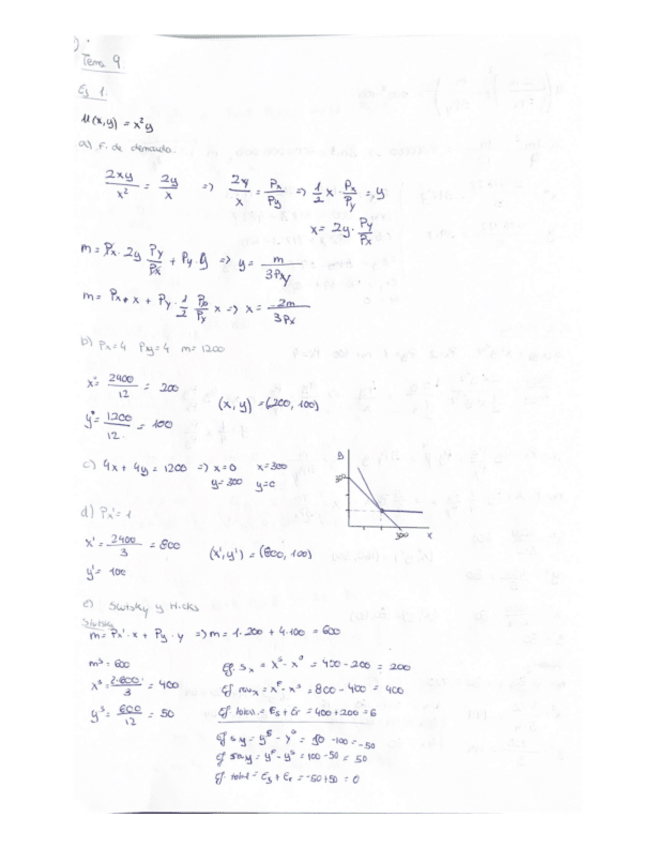 Tema 9
Ej 1.
u(x,y) = x²y
a) F. de demanda.
2xy/x² = 2y/x => 2y/x = Px/Py => 1/2 x · Px/Py = y
x = 2y · Py/Px
m = Px · 2y Py/Px + Py · y => y = m/3Py
m = Px · x + Py · 1/2 Px/Py x => x = 2m/3Px
b) Px = 4 Py = 4 m = 1200
xº = 2400/12 = 200
yº = 1200/12 = 100
(x,y) = (200, 100)
c) 4x + 4y = 1200 => x = 0 x = 300
y = 300 y = 0
300
300 x
d) Px' = 1
x' = 2400/3 = 800
y' = 100
(x',y') = (800, 100)
e) Slutsky y Hicks
Slutsky
m = Px' · x + Py · y => m = 1 · 200 + 4 · 100 = 600
mˢ = 600
xˢ = 2·600/3 = 400
yˢ = 600/12 = 50
Ef. sx = xˢ - xº = 400 - 200 = 200
Ef. rax = xᶠ - xˢ = 800 - 400 = 400
Ef total = Es + Er = 400 + 200 = 6
Ef sy = yˢ - yº = 50 - 100 = -50
Ef ray = yᶠ - yˢ = 100 - 50 = 50
Ef. total = Es + Er = -50 + 50 = 0